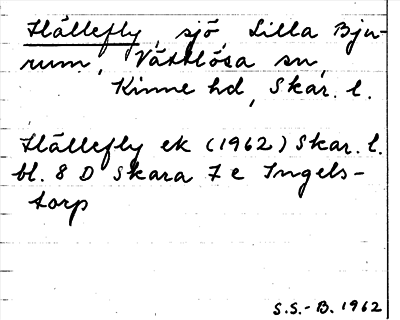 Hällefly, sjö, Lilla Bju-
rum, Vättlösa sn,
Kinne hd, Skar. l.
Hällefly ek (1962) Skar. l.
bl. 8 D Skara 7 e Ingels-
torp
S.S.-B. 1962